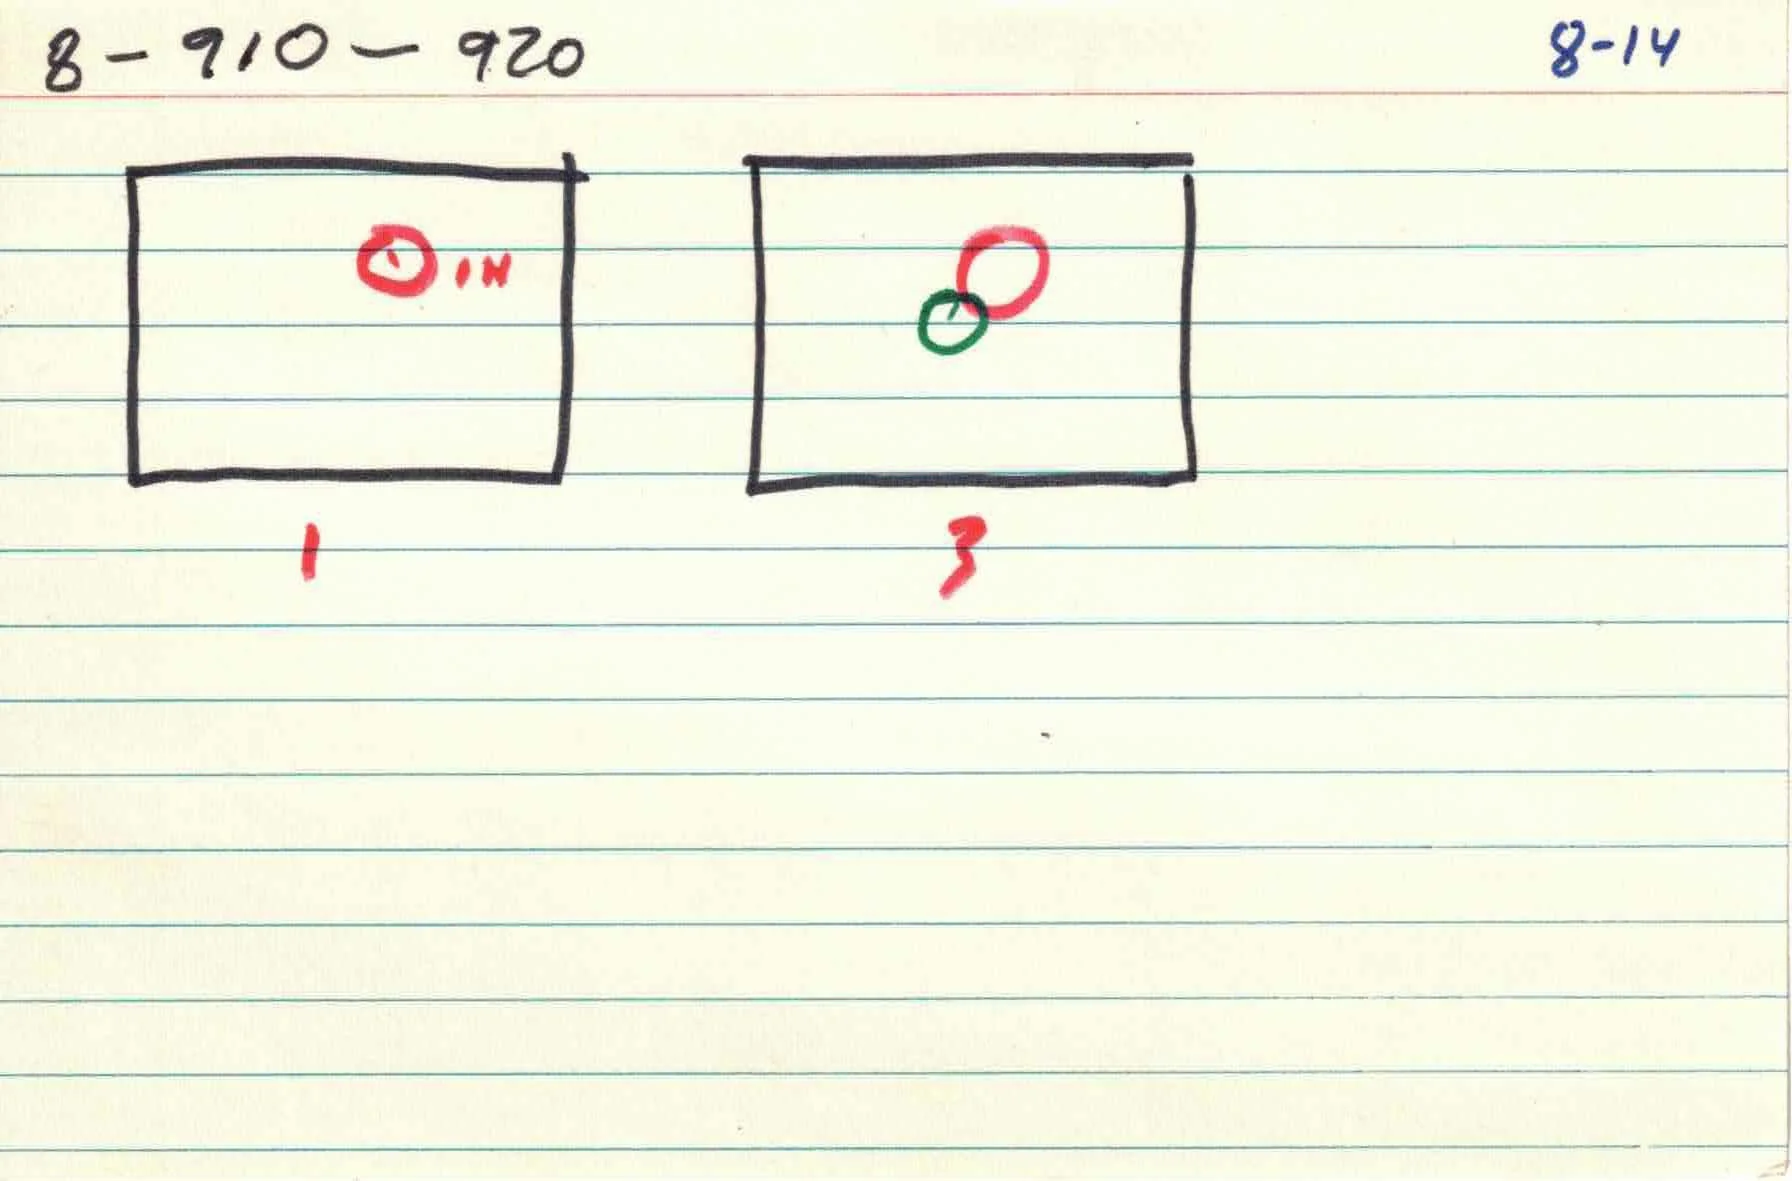 8 - 910 - 920
8-14
IN
1
3